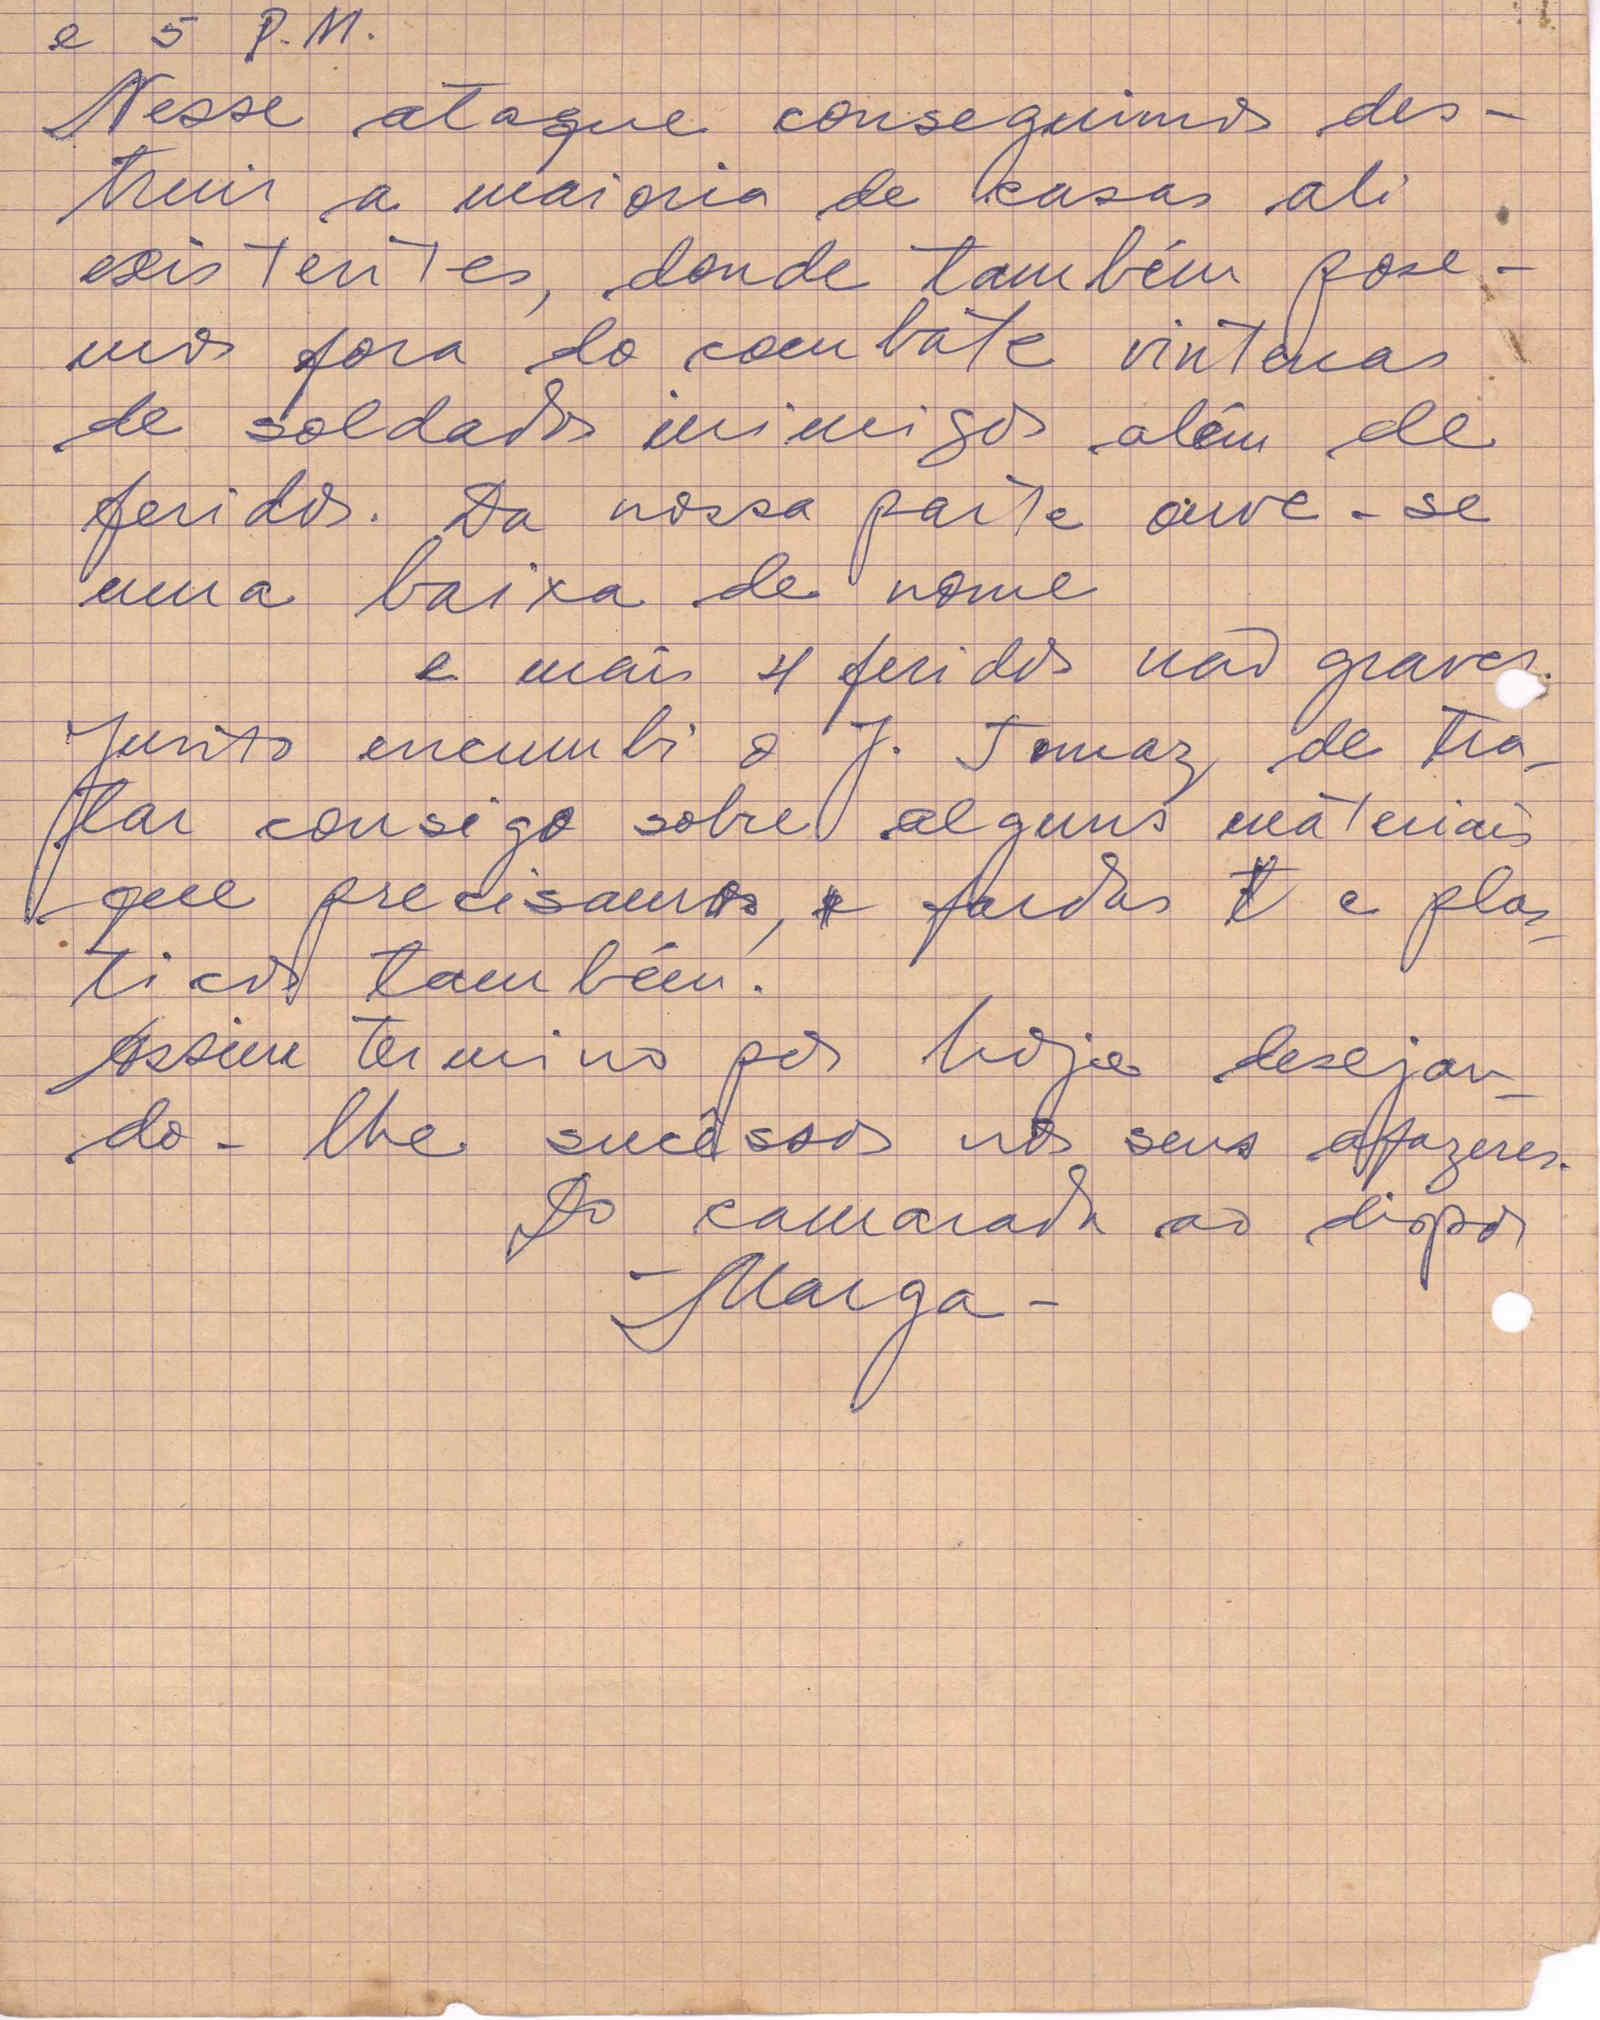 e 5 P.M.
Nesse ataque conseguimos des-
truir a maioria de casas ali
existentes, donde também pose-
mos fora do combate vintenas
de soldados inimigos além de
feridos. Da nossa parte ouve-se
uma baixa de nome
e mais 4 feridos não graves.
Junto encumbi o J. Tomaz, de tra-
tar consigo sobre alguns máteriais
que precisamos, e fardas e plas-
ticos também.
Assim termino por hoje desejan-
do-lhe sucêssos nos seus afazeres.
Do camarada ao dispor
-Marga-